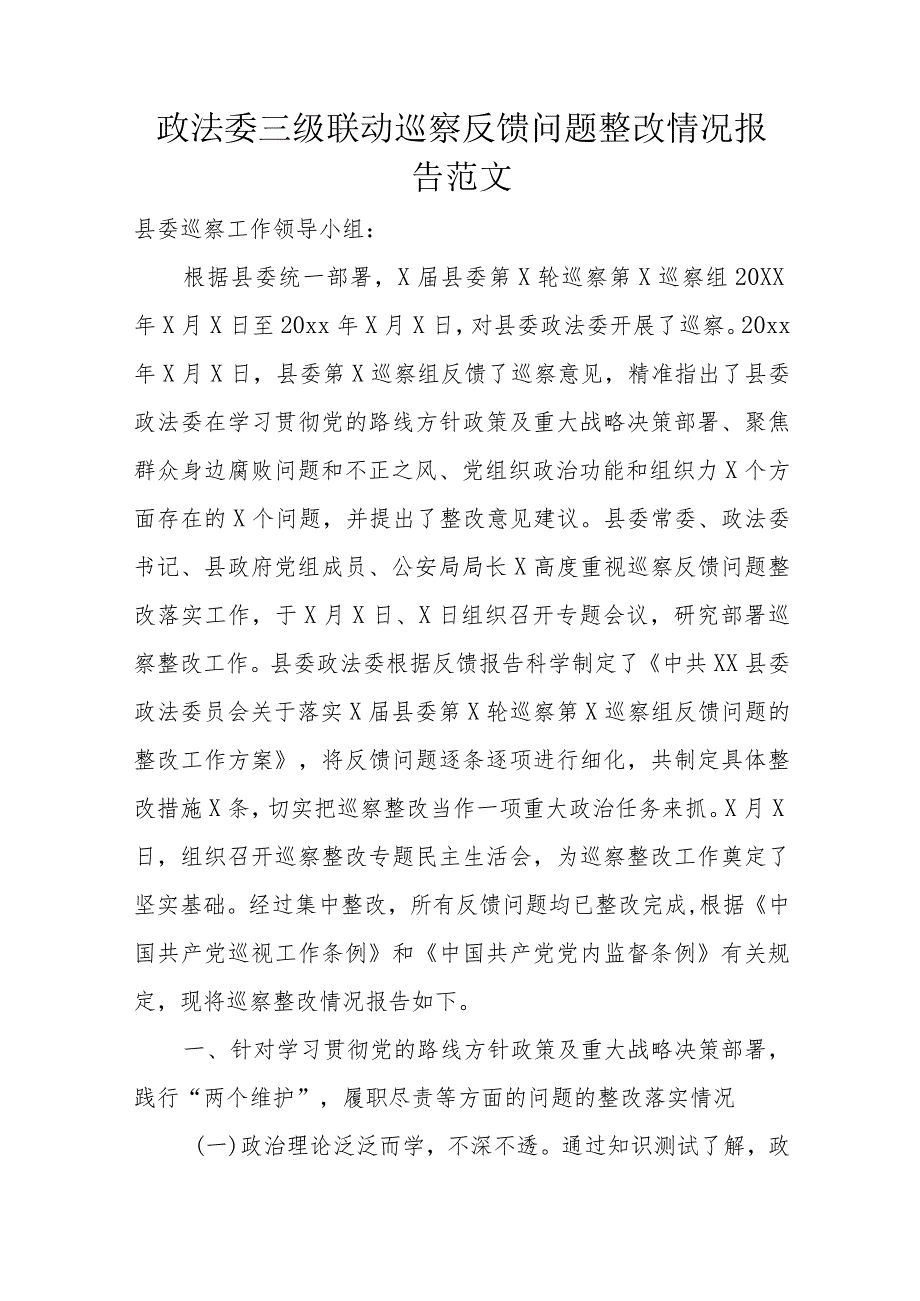 政法委三级联动巡察反馈问题整改情况报
告范文
县委巡察工作领导小组：
根据县委统一部署，X届县委第X轮巡察第X巡察组20XX
年X月X日至20xx年X月X日，对县委政法委开展了巡察。20xx
年X月X日，县委第X巡察组反馈了巡察意见，精准指出了县委
政法委在学习贯彻党的路线方针政策及重大战略决策部署、聚焦
群众身边腐败问题和不正之风、党组织政治功能和组织力X个方
面存在的X个问题，并提出了整改意见建议。县委常委、政法委
书记、县政府党组成员、公安局局长X高度重视巡察反馈问题整
改落实工作，于X月X日、X日组织召开专题会议，研究部署巡
察整改工作。县委政法委根据反馈报告科学制定了《中共XX县委
政法委员会关于落实X届县委第X轮巡察第X巡察组反馈问题的
整改工作方案》，将反馈问题逐条逐项进行细化，共制定具体整
改措施X条，切实把巡察整改当作一项重大政治任务来抓。X月X
日，组织召开巡察整改专题民主生活会，为巡察整改工作奠定了
坚实基础。经过集中整改，所有反馈问题均已整改完成,根据《中
国共产党巡视工作条例》和《中国共产党党内监督条例》有关规
定，现将巡察整改情况报告如下。
一、针对学习贯彻党的路线方针政策及重大战略决策部署，
践行“两个维护”，履职尽责等方面的问题的整改落实情况
(一)政治理论泛泛而学，不深不透。通过知识测试了解，政